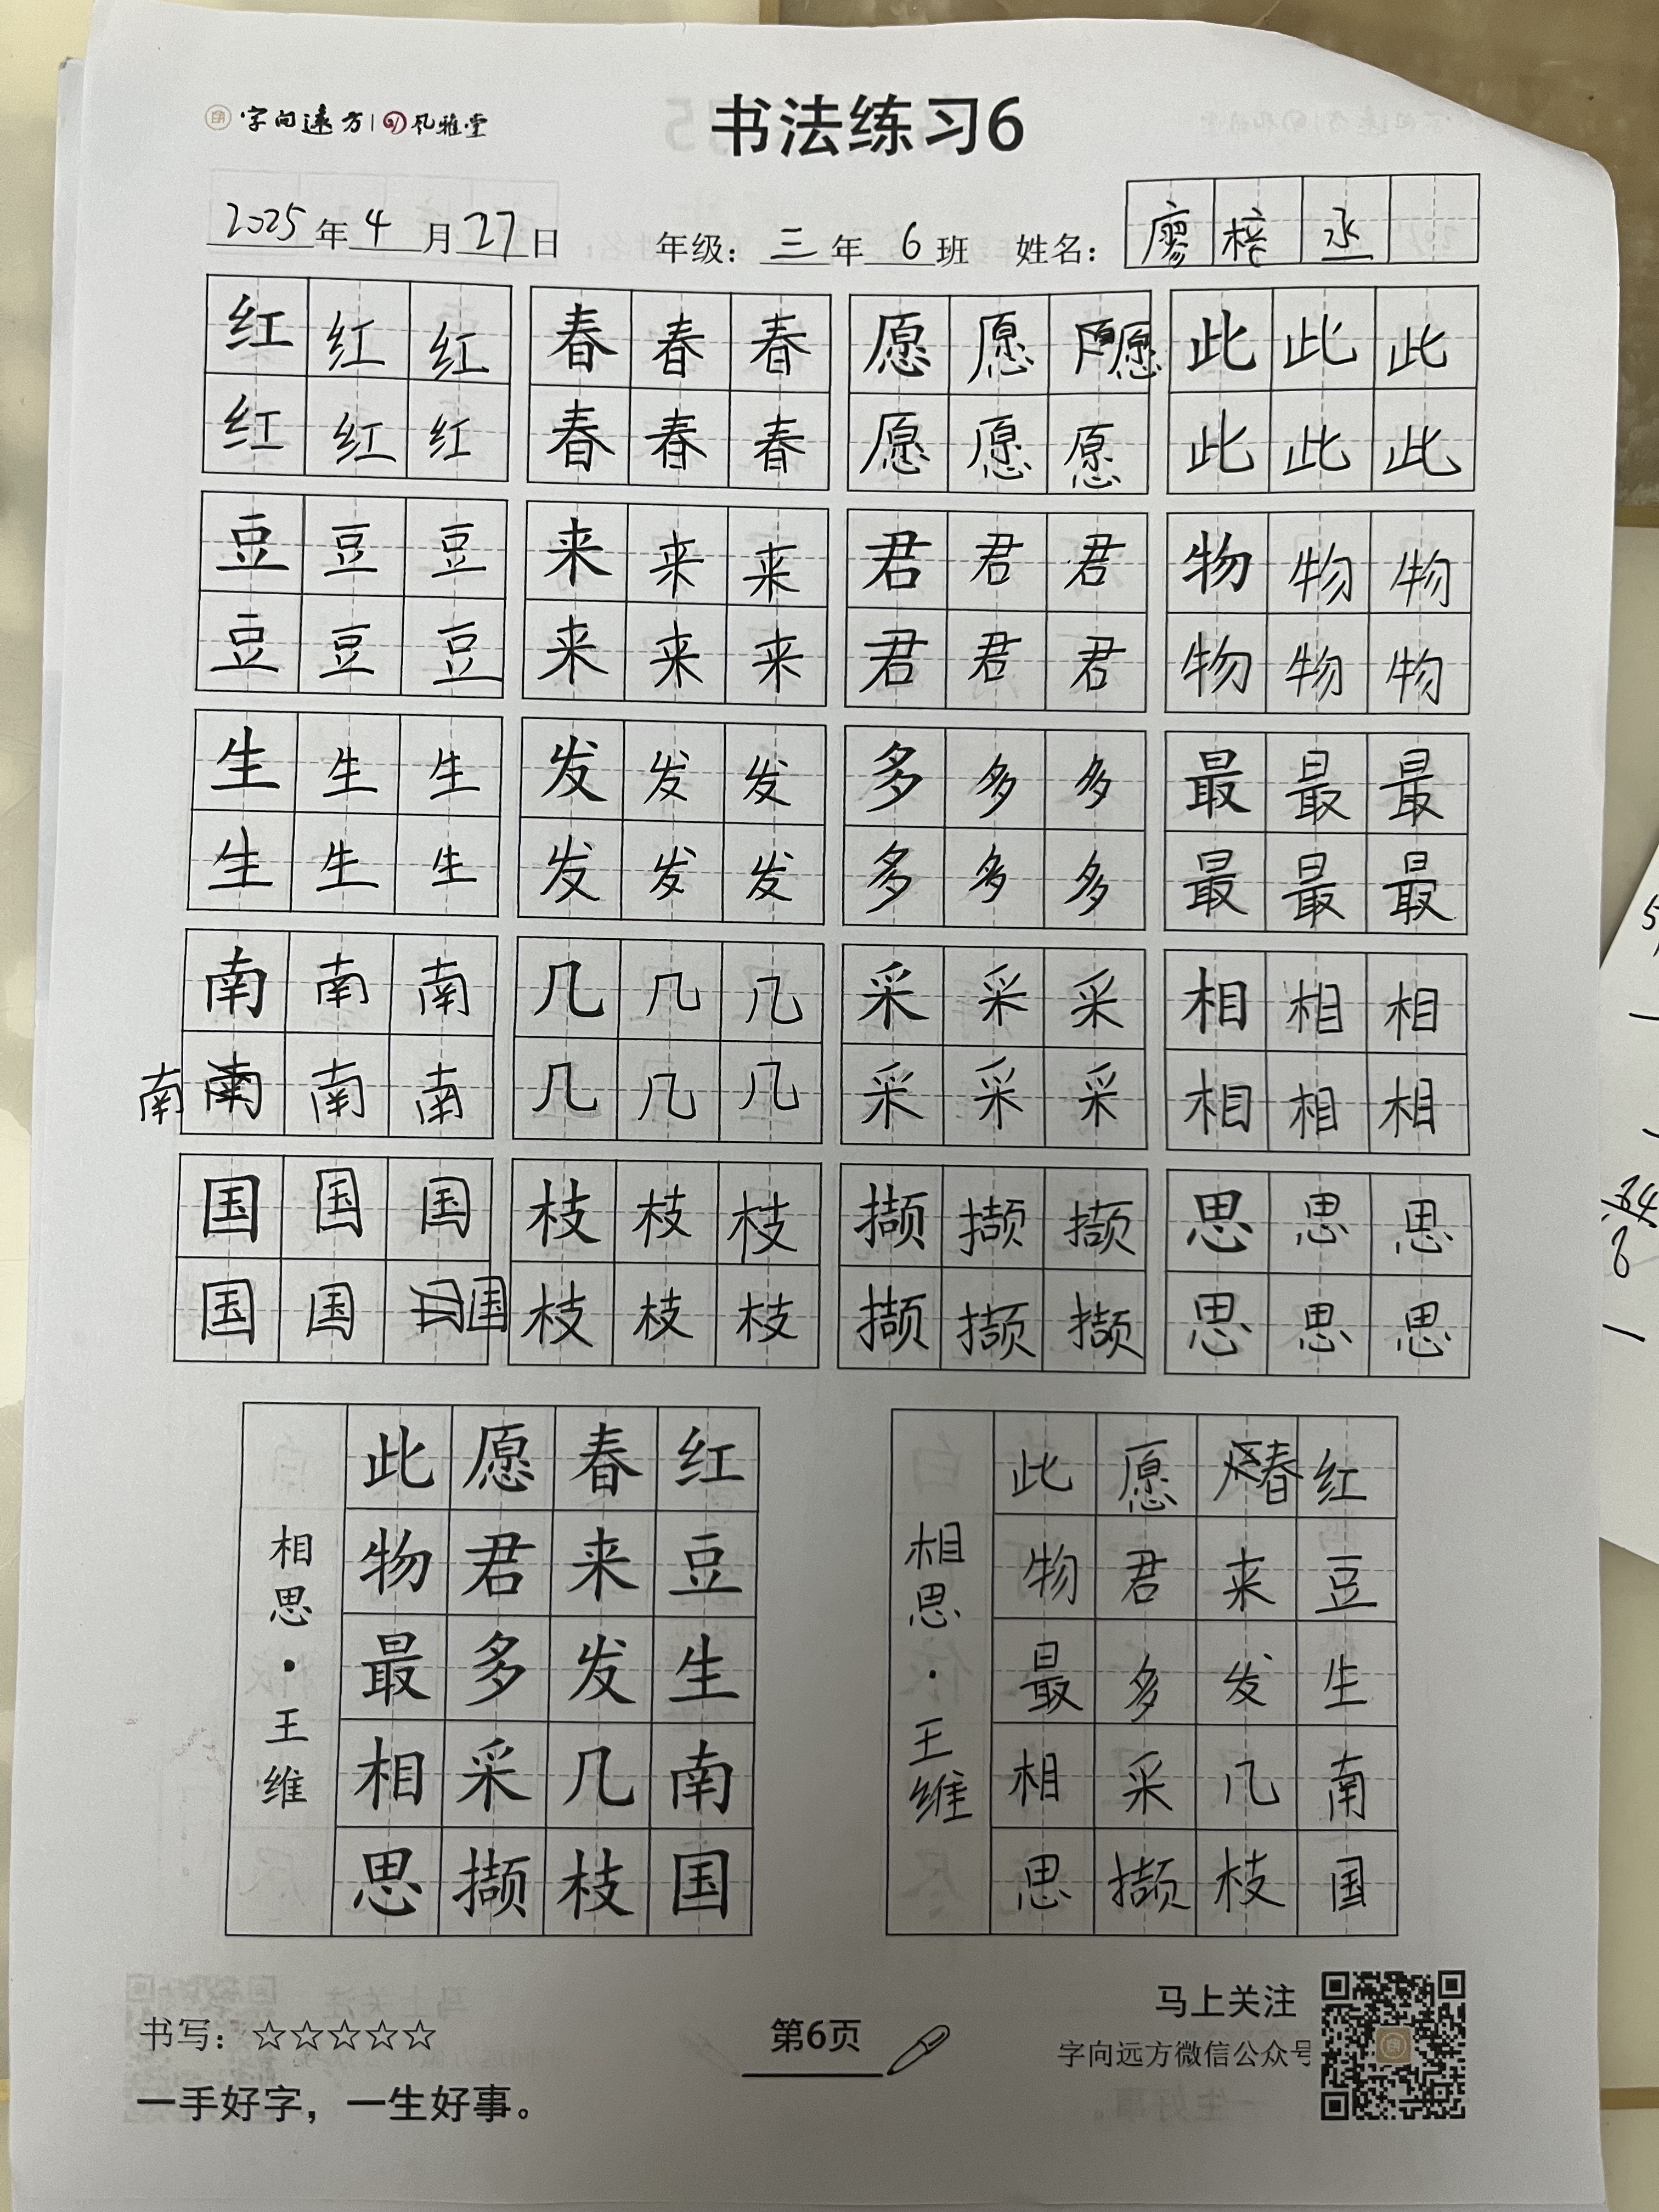 字向远方 风雅堂
书法练习6
2025年4月27日 年级：三年6班 姓名：廖梓丞
红红红 春春春 愿愿愿 此此此
红红红 春春春 愿愿愿 此此此
豆豆豆 来来来 君君君 物物物
豆豆豆 来来来 君君君 物物物
生生生 发发发 多多多 最最最
生生生 发发发 多多多 最最最
南南南 几几几 采采采 相相相
南南南南 几几几 采采采 相相相
国国国 枝枝枝 撷撷撷 思思思
国国国 枝枝枝 撷撷撷 思思思
红豆生南国
春来发几枝
愿君多采撷
此物最相思
相思·王维
红豆生南国
春来发几枝
愿君多采撷
此物最相思
相思·王维
书写：☆☆☆☆☆
一手好字，一生好事。
第6页
马上关注
字向远方微信公众号